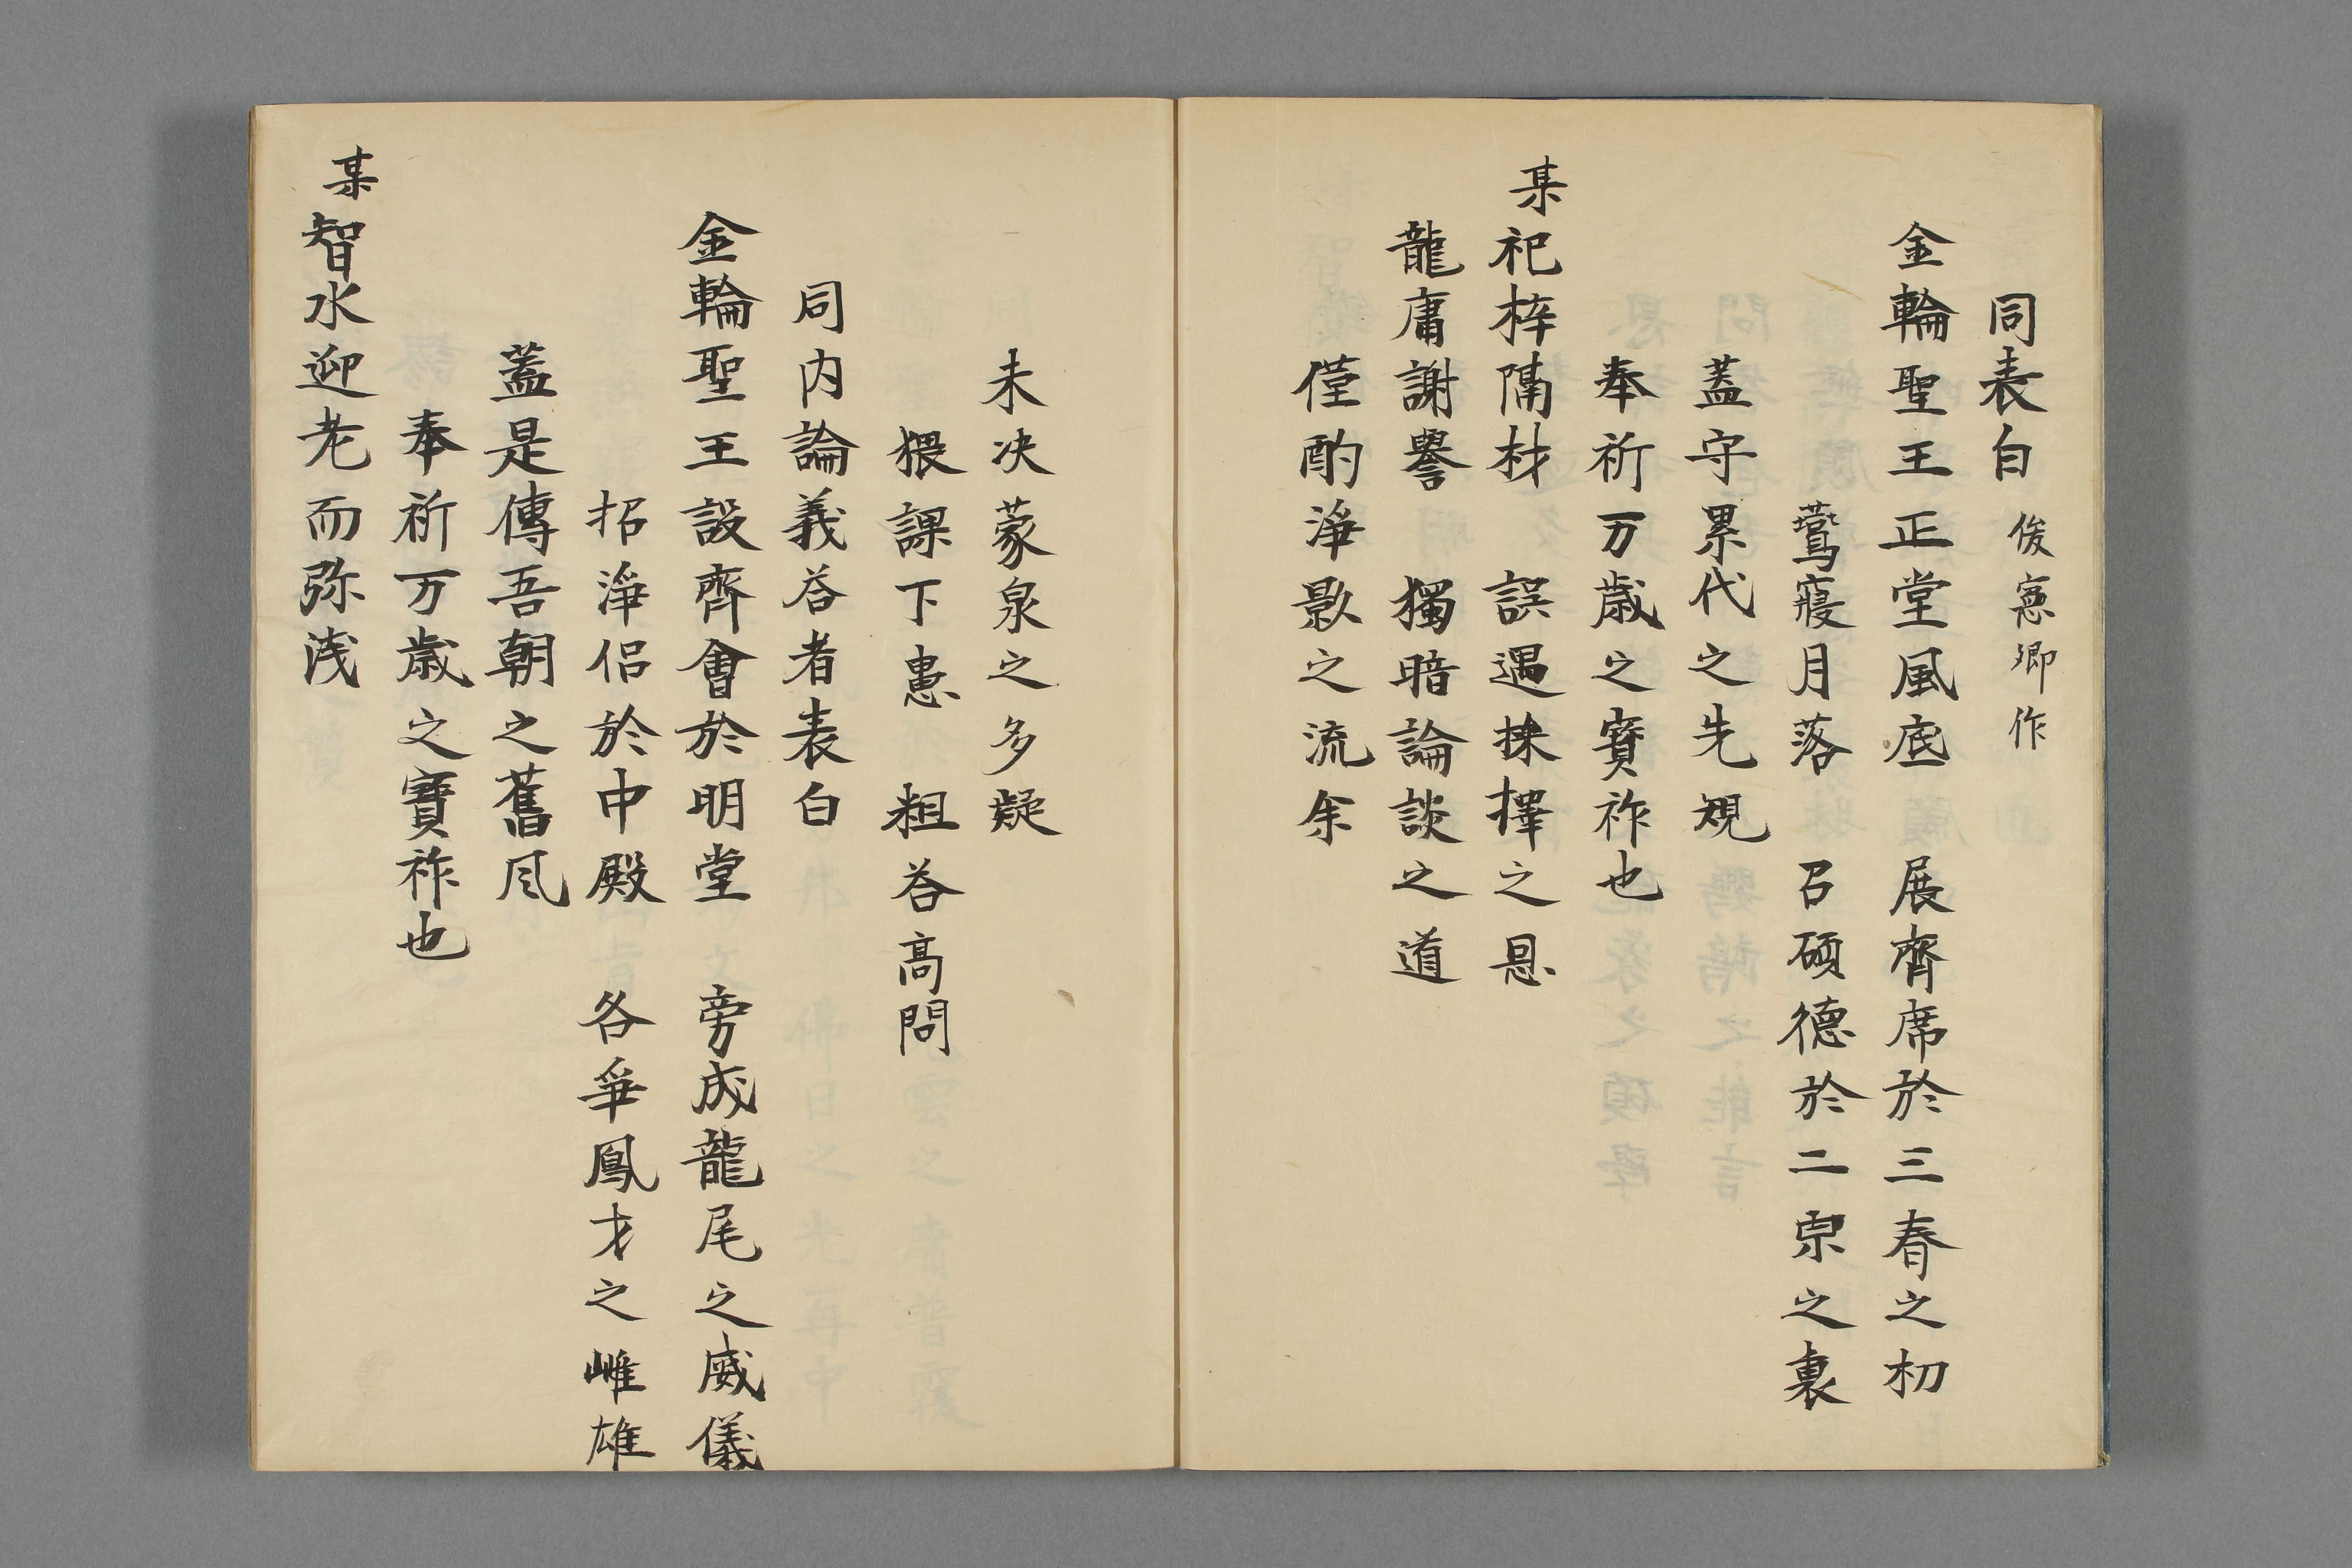 同表白 俊憲卿作
金輪聖王正堂風底 展齊席於三春之初
鶯寢月落 召碩德於二宗之裏
蓋守累代之先規
奉祈万歳之寶祚也
某祀梓隔材 誤遇採擇之恩
龍庸謝譽 獨暗論談之道
僅酌淨影之流余
未决蒙泉之多疑
猥課下愚 粗荅高問
同内論義荅者表白
金輪聖王設齊會於明堂 旁成龍尾之威儀
招淨侶於中殿 各爭鳳才之雌雄
蓋是傳吾朝之舊風
奉祈万歳之寶祚也
某智水迎老而弥浅